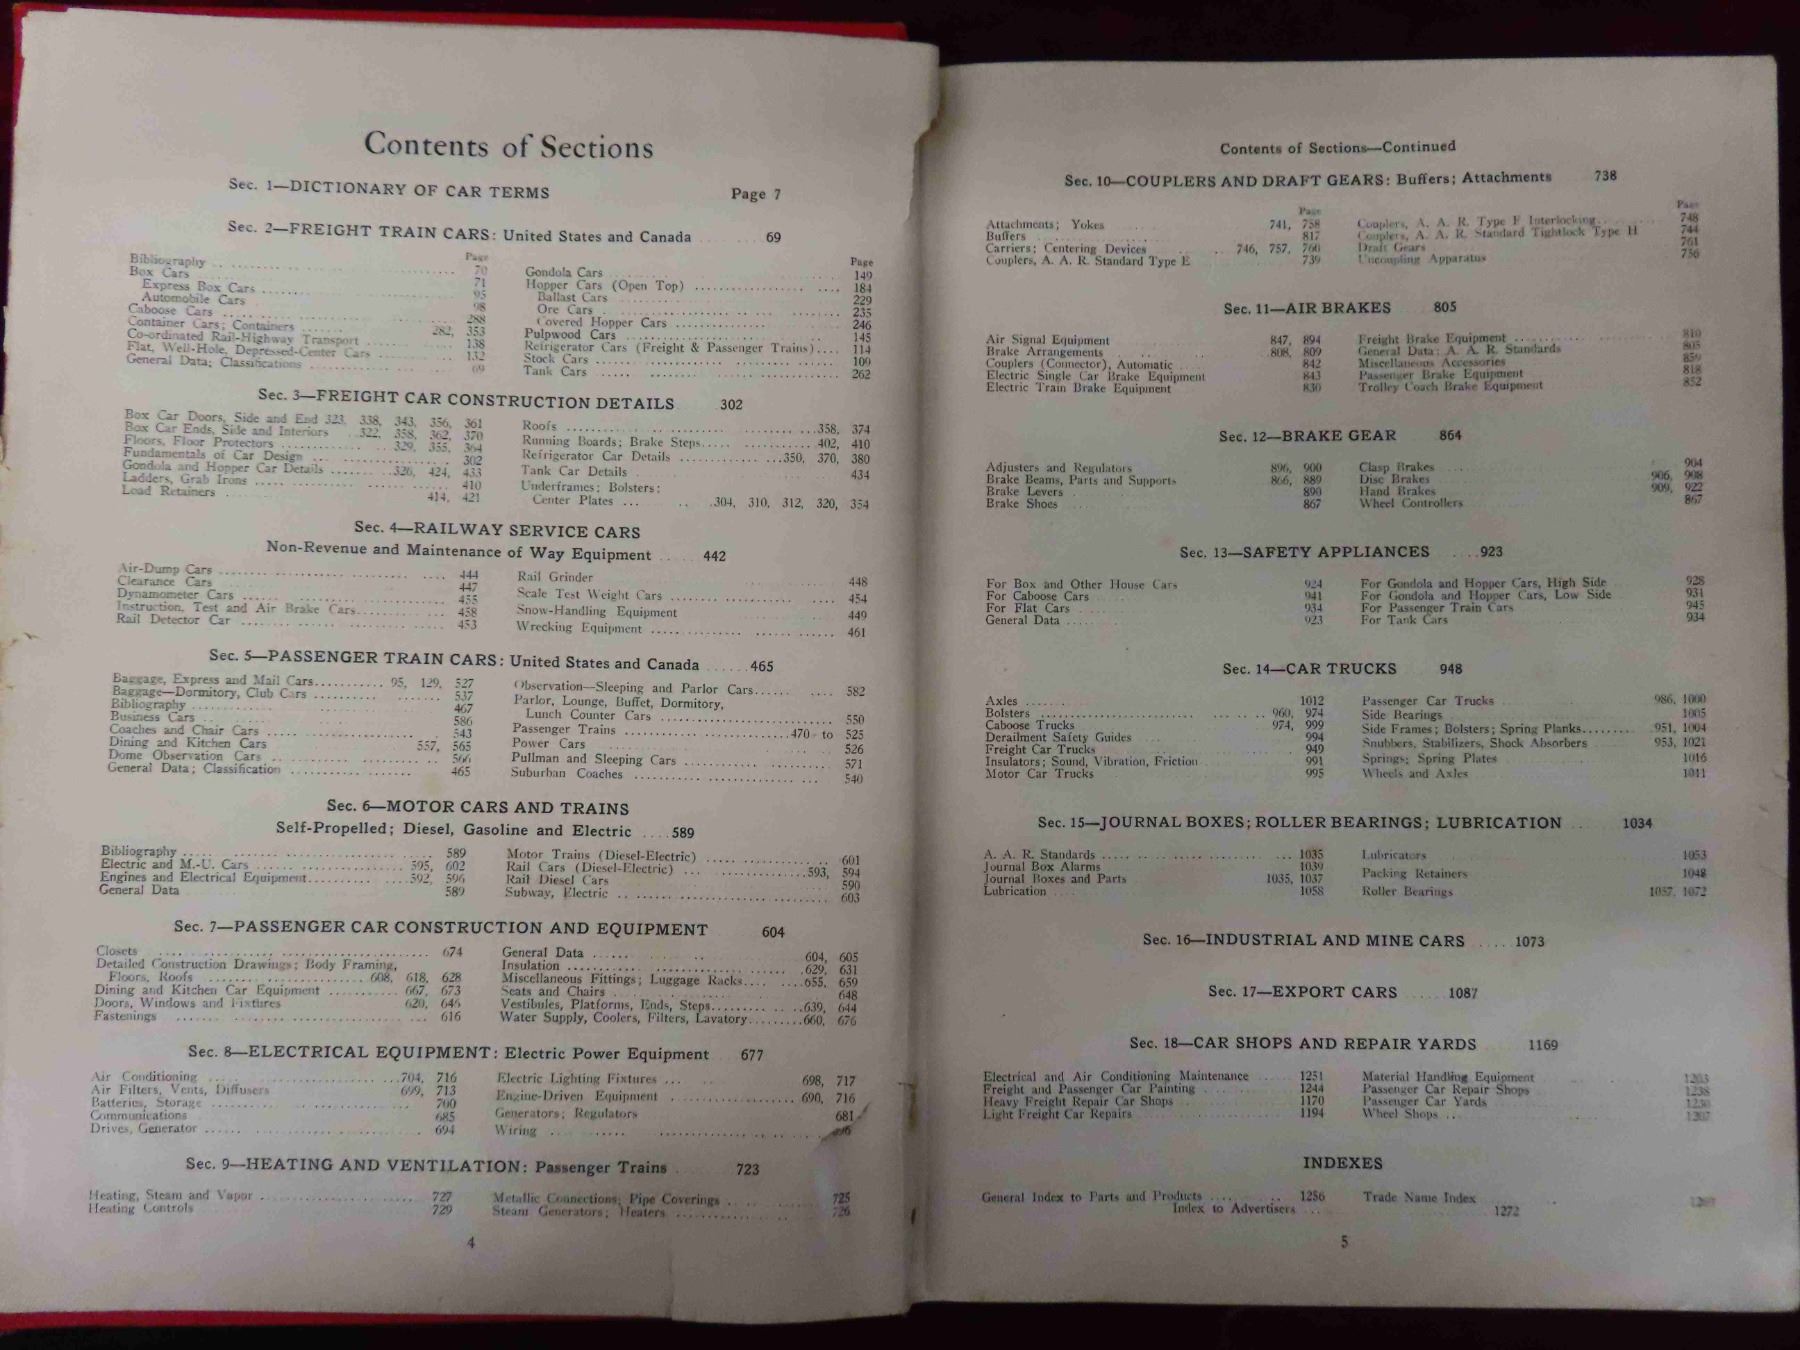 Contents of Sections
Sec. 1—DICTIONARY OF CAR TERMS Page 7
Sec. 2—FREIGHT TRAIN CARS: United States and Canada 69
Page
Bibliography 70
Box Cars 71
Express Box Cars 95
Automobile Cars 98
Caboose Cars 288
Container Cars; Containers 282, 353
Co-ordinated Rail-Highway Transport 138
Flat, Well-Hole, Depressed-Center Cars 132
General Data; Classifications 69
Page
Gondola Cars 149
Hopper Cars (Open Top) 184
Ballast Cars 229
Ore Cars 235
Covered Hopper Cars 246
Pulpwood Cars 145
Refrigerator Cars (Freight & Passenger Trains) 114
Stock Cars 109
Tank Cars 262
Sec. 3—FREIGHT CAR CONSTRUCTION DETAILS 302
Box Car Doors, Side and End 323, 338, 343, 356, 361
Box Car Ends, Side and Interiors 322, 358, 362, 370
Floors, Floor Protectors 329, 355, 364
Fundamentals of Car Design 302
Gondola and Hopper Car Details 326, 424, 433
Ladders, Grab Irons 410
Load Retainers 414, 421
Roofs 358, 374
Running Boards; Brake Steps 402, 410
Refrigerator Car Details 350, 370, 380
Tank Car Details 434
Underframes; Bolsters;
Center Plates 304, 310, 312, 320, 354
Sec. 4—RAILWAY SERVICE CARS
Non-Revenue and Maintenance of Way Equipment 442
Air-Dump Cars 444
Clearance Cars 447
Dynamometer Cars 455
Instruction, Test and Air Brake Cars 458
Rail Detector Car 453
Rail Grinder 448
Scale Test Weight Cars 454
Snow-Handling Equipment 449
Wrecking Equipment 461
Sec. 5—PASSENGER TRAIN CARS: United States and Canada 465
Baggage, Express and Mail Cars 95, 129, 527
Baggage—Dormitory, Club Cars 537
Bibliography 467
Business Cars 586
Coaches and Chair Cars 543
Dining and Kitchen Cars 557, 565
Dome Observation Cars 566
General Data; Classification 465
Observation—Sleeping and Parlor Cars 582
Parlor, Lounge, Buffet, Dormitory,
Lunch Counter Cars 550
Passenger Trains 470 to 525
Power Cars 526
Pullman and Sleeping Cars 571
Suburban Coaches 540
Sec. 6—MOTOR CARS AND TRAINS
Self-Propelled; Diesel, Gasoline and Electric 589
Bibliography 589
Electric and M.-U. Cars 595, 602
Engines and Electrical Equipment 592, 596
General Data 589
Motor Trains (Diesel-Electric) 601
Rail Cars (Diesel-Electric) 593, 594
Rail Diesel Cars 590
Subway, Electric 603
Sec. 7—PASSENGER CAR CONSTRUCTION AND EQUIPMENT 604
Closets 674
Detailed Construction Drawings; Body Framing,
Floors, Roofs 608, 618, 628
Dining and Kitchen Car Equipment 667, 673
Doors, Windows and Fixtures 620, 646
Fastenings 616
General Data 604, 605
Insulation 629, 631
Miscellaneous Fittings; Luggage Racks 655, 659
Seats and Chairs 648
Vestibules, Platforms, Ends, Steps 639, 644
Water Supply, Coolers, Filters, Lavatory 660, 676
Sec. 8—ELECTRICAL EQUIPMENT: Electric Power Equipment 677
Air Conditioning 704, 716
Air Filters, Vents, Diffusers 699, 713
Batteries, Storage 700
Communications 685
Drives, Generator 694
Electric Lighting Fixtures 698, 717
Engine-Driven Equipment 690, 716
Generators; Regulators 681
Wiring
Sec. 9—HEATING AND VENTILATION: Passenger Trains 723
Heating, Steam and Vapor 727
Heating Controls 729
Metallic Connections; Pipe Coverings 725
Steam Generators; Heaters 726
4
Contents of Sections—Continued
Sec. 10—COUPLERS AND DRAFT GEARS: Buffers; Attachments 738
Page
Attachments; Yokes 741, 758
Buffers 817
Carriers; Centering Devices 746, 757, 760
Couplers, A. A. R. Standard Type E 739
Page
Couplers, A. A. R. Type F Interlocking 748
Couplers, A. A. R. Standard Tightlock Type H 744
Draft Gears 761
Uncoupling Apparatus 756
Sec. 11—AIR BRAKES 805
Air Signal Equipment 847, 894
Brake Arrangements 808, 809
Couplers (Connector), Automatic 842
Electric Single Car Brake Equipment 843
Electric Train Brake Equipment 830
Freight Brake Equipment 810
General Data; A. A. R. Standards 805
Miscellaneous Accessories 859
Passenger Brake Equipment 818
Trolley Coach Brake Equipment 852
Sec. 12—BRAKE GEAR 864
Adjusters and Regulators 896, 900
Brake Beams, Parts and Supports 866, 889
Brake Levers 890
Brake Shoes 867
Clasp Brakes 904
Disc Brakes 906, 908
Hand Brakes 909, 922
Wheel Controllers 867
Sec. 13—SAFETY APPLIANCES 923
For Box and Other House Cars 924
For Caboose Cars 941
For Flat Cars 934
General Data 923
For Gondola and Hopper Cars, High Side 928
For Gondola and Hopper Cars, Low Side 931
For Passenger Train Cars 945
For Tank Cars 934
Sec. 14—CAR TRUCKS 948
Axles 1012
Bolsters 960, 974
Caboose Trucks 974, 999
Derailment Safety Guides 994
Freight Car Trucks 949
Insulators; Sound, Vibration, Friction 991
Motor Car Trucks 995
Passenger Car Trucks 986, 1000
Side Bearings 1005
Side Frames; Bolsters; Spring Planks 951, 1004
Snubbers, Stabilizers, Shock Absorbers 953, 1021
Springs; Spring Plates 1016
Wheels and Axles 1011
Sec. 15—JOURNAL BOXES; ROLLER BEARINGS; LUBRICATION 1034
A. A. R. Standards 1035
Journal Box Alarms 1039
Journal Boxes and Parts 1035, 1037
Lubrication 1058
Lubricators 1053
Packing Retainers 1048
Roller Bearings 1057, 1072
Sec. 16—INDUSTRIAL AND MINE CARS 1073
Sec. 17—EXPORT CARS 1087
Sec. 18—CAR SHOPS AND REPAIR YARDS 1169
Electrical and Air Conditioning Maintenance 1251
Freight and Passenger Car Painting 1244
Heavy Freight Repair Car Shops 1170
Light Freight Car Repairs 1194
Material Handling Equipment 1203
Passenger Car Repair Shops 1238
Passenger Car Yards
Wheel Shops 1207
INDEXES
General Index to Parts and Products 1256
Trade Name Index
Index to Advertisers 1272
5